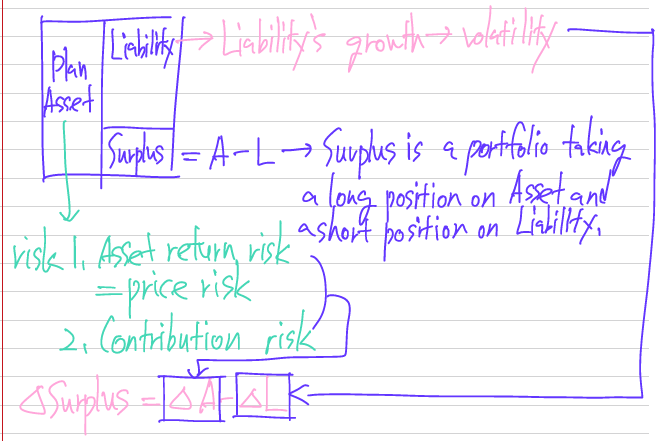 Liability → Liability's growth → volatility
Plan
Asset
Surplus = A - L → Surplus is a portfolio taking
a long position on Asset and
a short position on Liability.
risk 1. Asset return risk
= price risk
2. Contribution risk
△Surplus = △A - △L